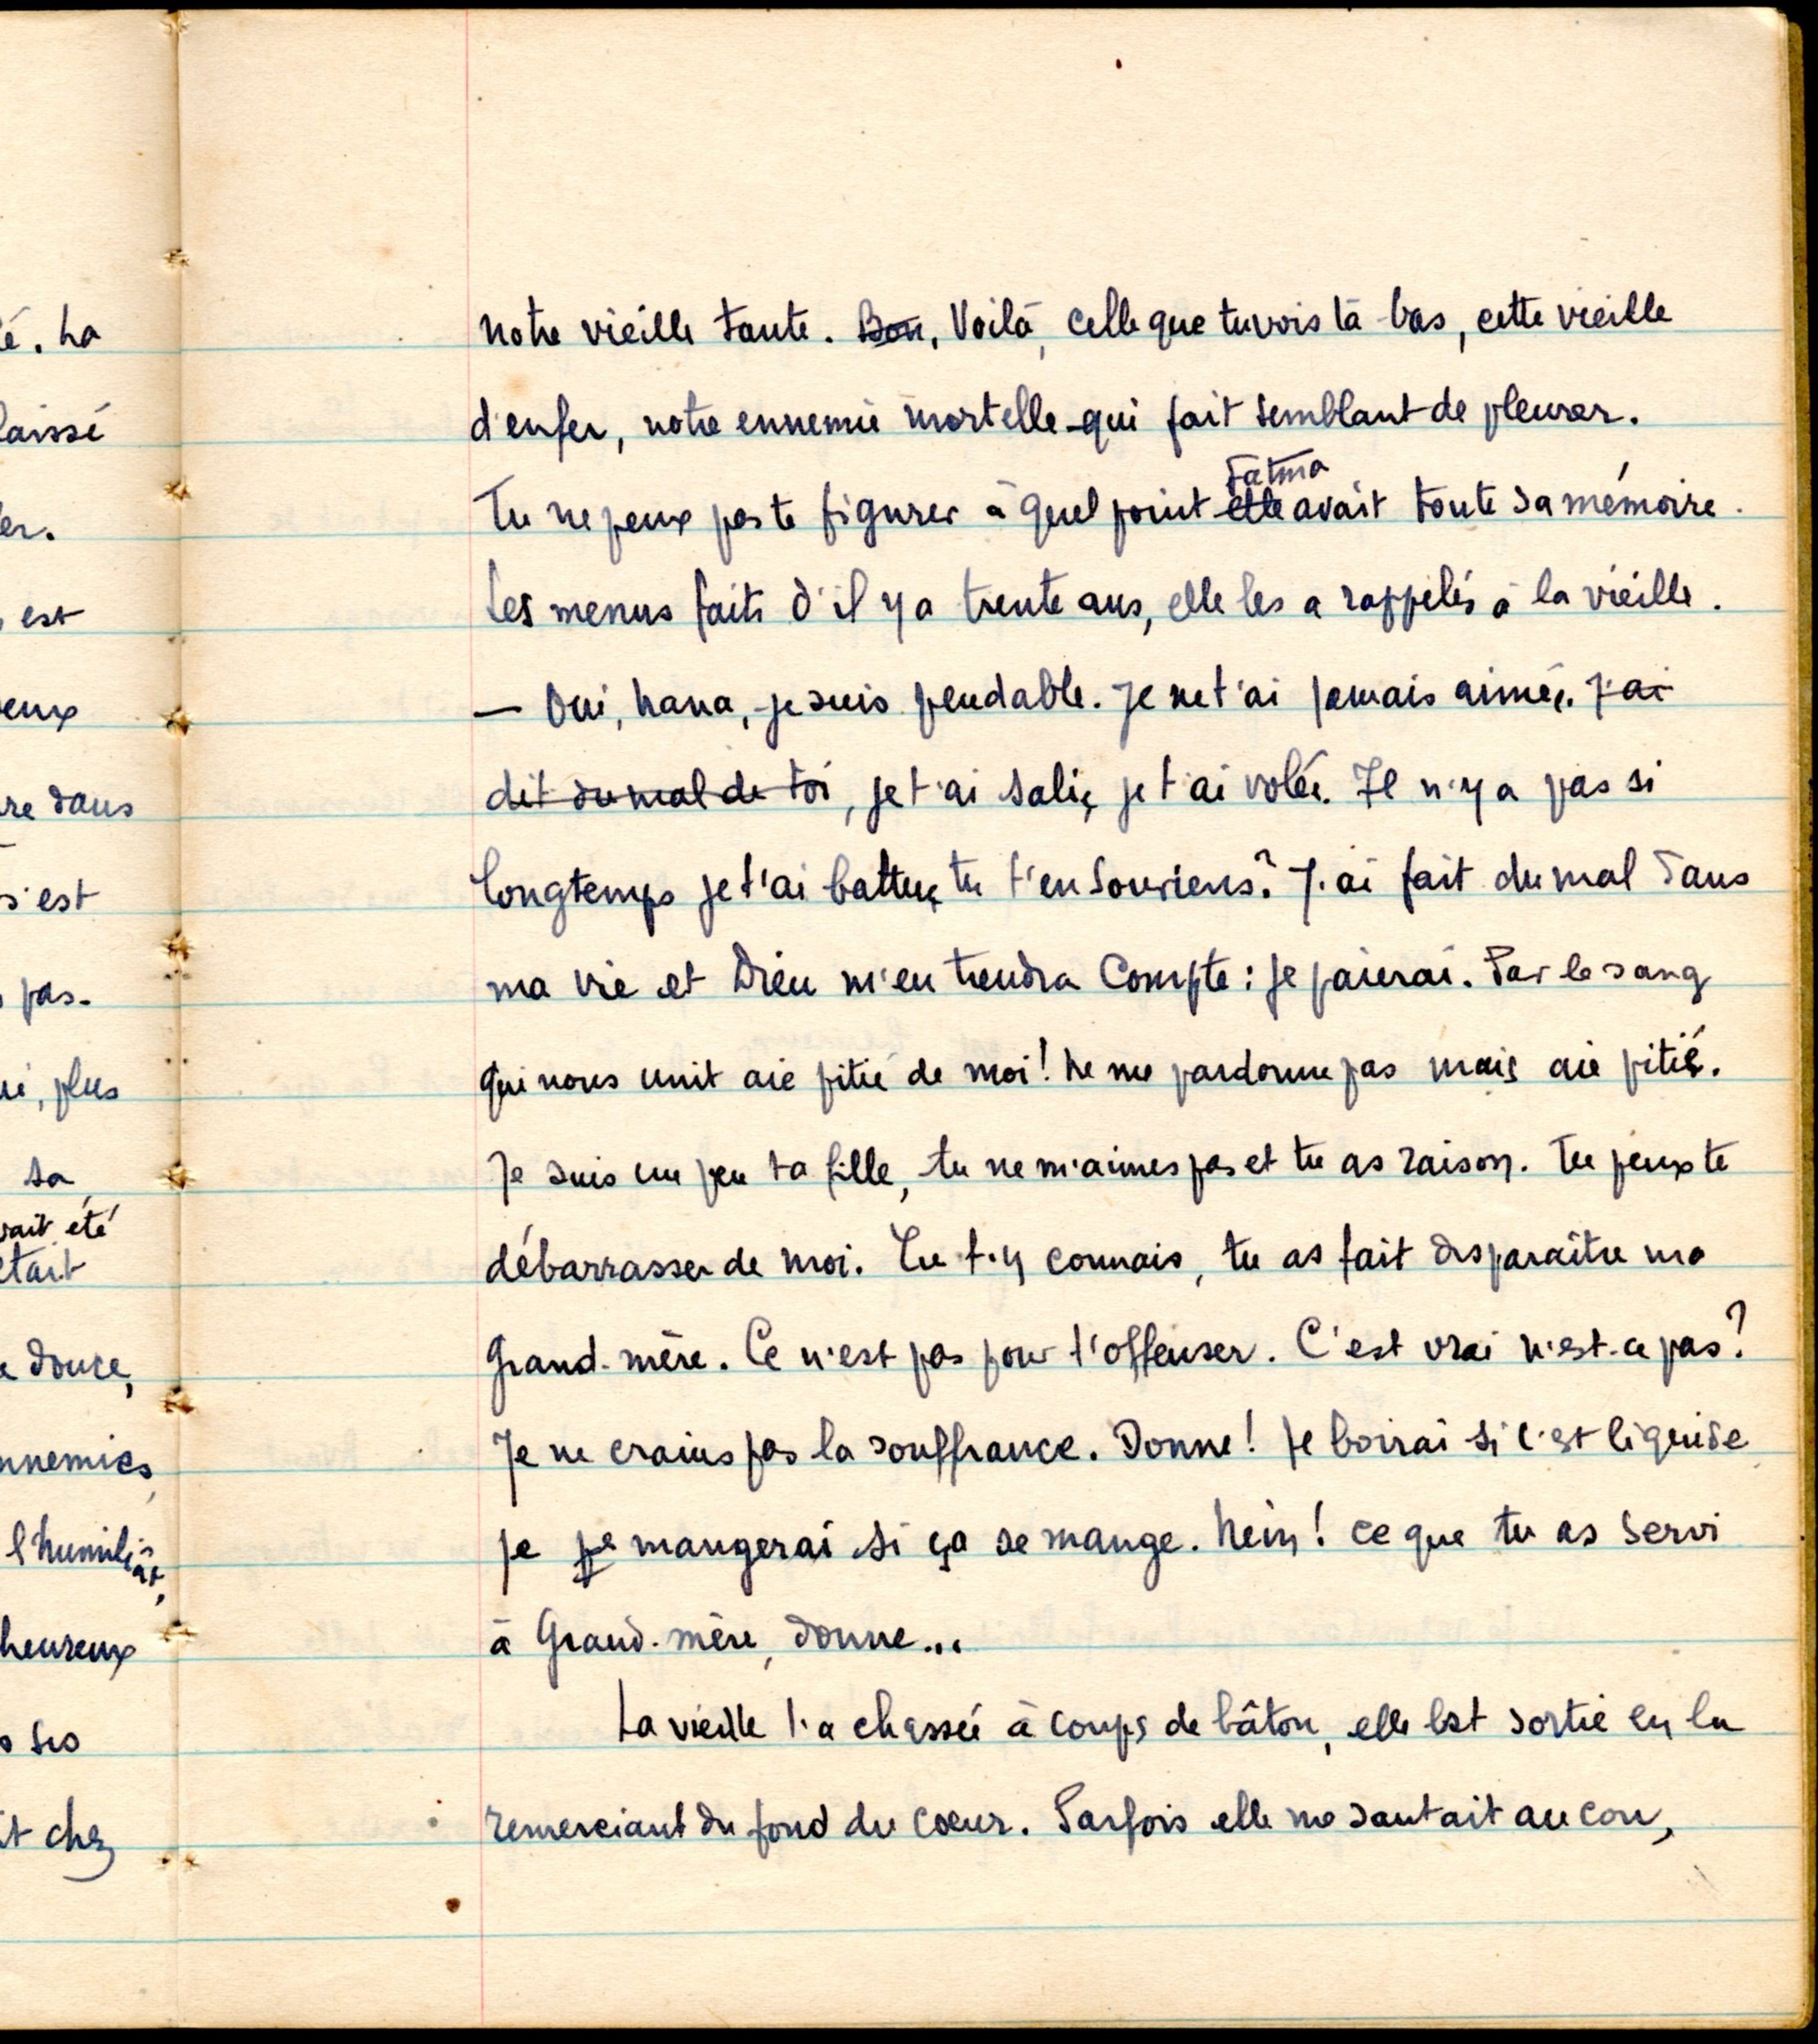 é. La
laissé
er.
, est
eux
re dans
s'est
, pas.
ui, plus
sa
vait été
était
e douce,
nnemies,
l'humiliât,
heureux
s ses
it chez
notre vieille tante. Bon, Voilà, celle que tu vois là-bas, cette vieille
d'enfer, notre ennemie mortelle qui fait semblant de pleurer.
Fatma
Tu ne peux pas te figurer à quel point elle avait toute sa mémoire.
Les menus faits d'il y a trente ans, elle les a rappelés à la vieille.
— Oui, nana, je suis pendable. Je ne t'ai jamais aimée. J'ai
dit du mal de toi, je t'ai salie, je t'ai volée. Il n'y a pas si
longtemps je t'ai battue, tu t'en souviens? J'ai fait du mal dans
ma vie et Dieu m'en tiendra compte : je paierai. Par le sang
qui nous unit aie pitié de moi! Ne me pardonne pas mais aie pitié.
Je suis un peu ta fille, tu ne m'aimes pas et tu as raison. Tu peux te
débarrasser de moi. Tu t'y connais, tu as fait disparaître ma
grand-mère. Ce n'est pas pour t'offenser. C'est vrai n'est-ce pas?
Je ne crains pas la souffrance. Donne! Je boirai si c'est liquide,
je je mangerai si ça se mange. Hein! ce que tu as servi
à Grand-mère, donne...
La vieille l'a chassée à coups de bâton, elle est sortie en la
remerciant du fond du cœur. Parfois elle me sautait au cou,